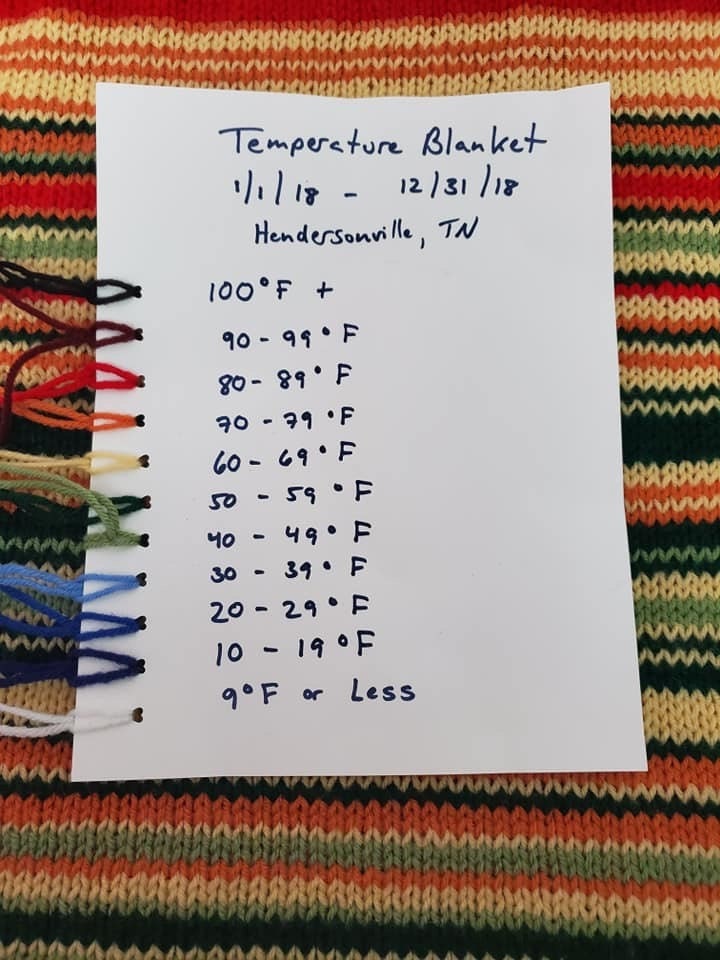 Temperature Blanket
1/1/18 - 12/31/18
Hendersonville, TN
100°F +
90 - 99°F
80 - 89°F
70 - 79°F
60 - 69°F
50 - 59°F
40 - 49°F
30 - 39°F
20 - 29°F
10 - 19°F
9°F or Less